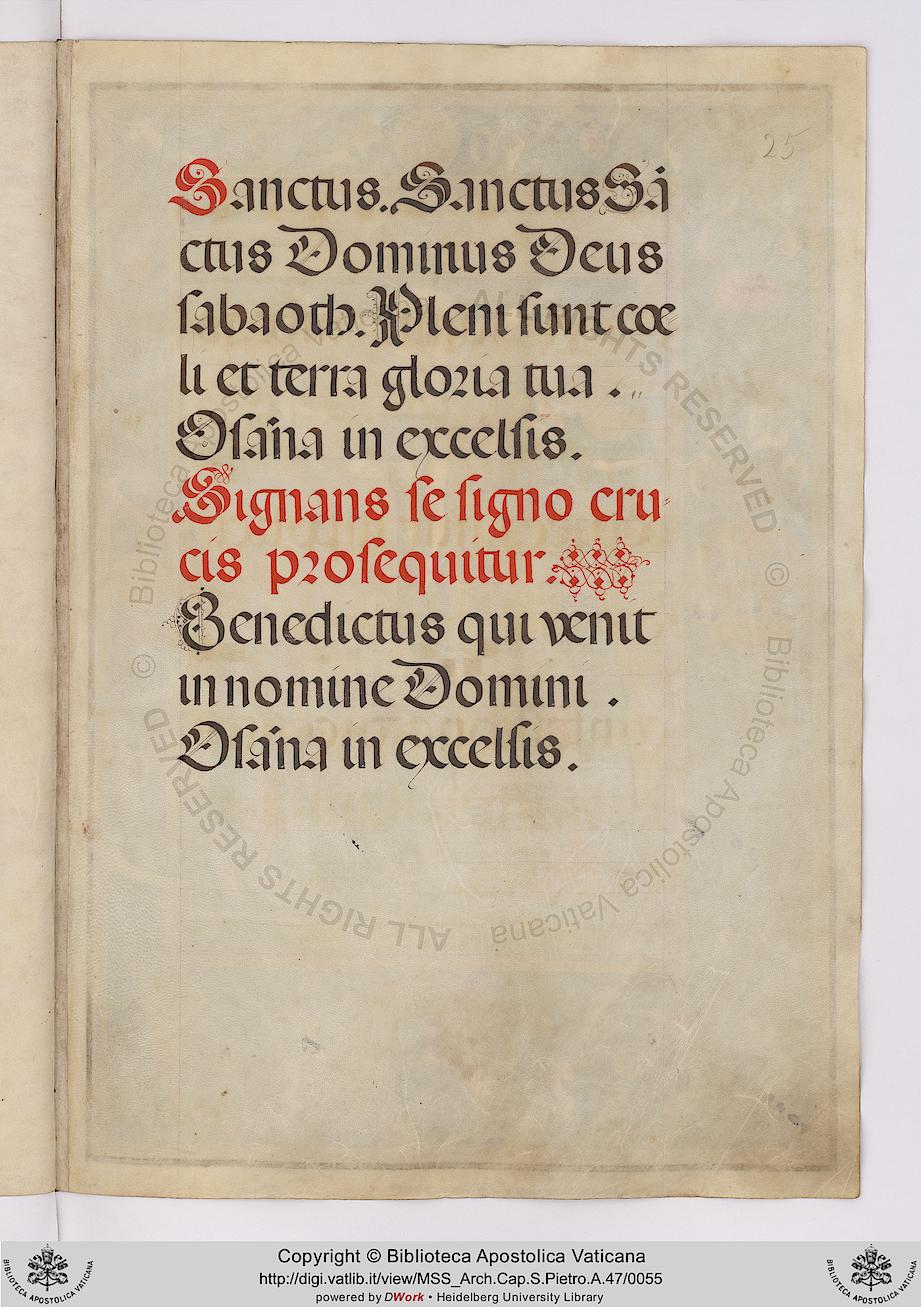 25
Sanctus. Sanctus Sā
ctus Dominus Deus
sabaoth. Pleni sunt cœ
li et terra gloria tua .
Osāna in excelsis.
Signans se signo cru-
cis prosequitur.
Benedictus qui venit
in nomine Domini .
Osāna in excelsis.
© Biblioteca Apostolica Vaticana ALL RIGHTS RESERVED
© Biblioteca Apostolica Vaticana ALL RIGHTS RESERVED
BIBLIOTECA APOSTOLICA VATICANA
Copyright © Biblioteca Apostolica Vaticana
http://digi.vatlib.it/view/MSS_Arch.Cap.S.Pietro.A.47/0055
powered by DWork • Heidelberg University Library
BIBLIOTECA APOSTOLICA VATICANA